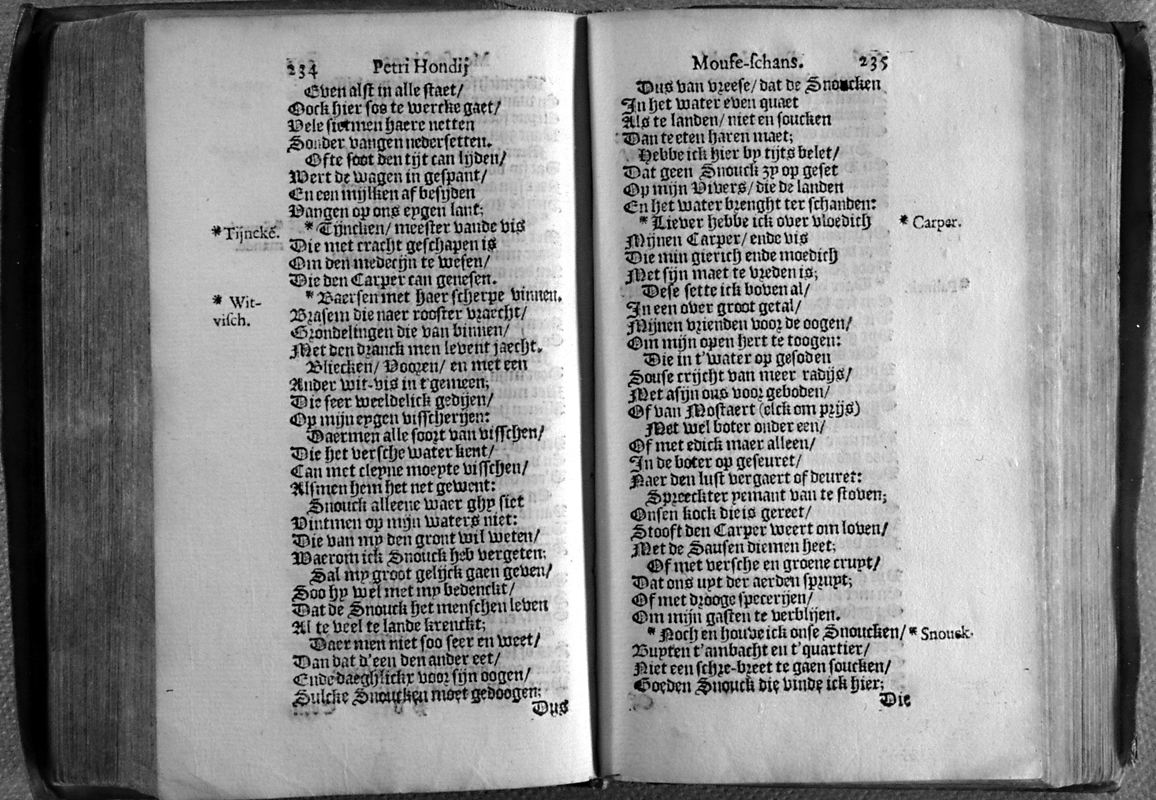 234 Petri Hondij
Even alst in alle staet/
Oock hier soo te wercke gaet/
Vele sietmen haere netten
Sonder vangen nedersetten.
Ofte soot den tijt can lijden/
Wert de wagen in gespant/
En een mijlken af besyden
Vangen op ons eygen lant;
*Tijnckẽ.
* Tijncken/ meester vande vis
Die met cracht geschapen is
Om den medecijn te wesen/
Die den Carper can genesen.
* Wit-
visch.
* Baersen met haer scherpe vinnen.
Brasem die naer rooster vraecht/
Grondelingen die van binnen/
Met den dranck men levent jaecht.
Bliecken/ Vooren/ en met een
Ander wit-vis in t'gemeen;
Die seer weeldelick gedijen/
Op mijn eygen visscherijen:
Daermen alle soort van visschen/
Die het versche water kent/
Can met cleyne moeyte visschen/
Alsmen hem het net gewent:
Snouck alleene waer ghy siet
Vintmen op mijn waters niet:
Die van my den gront wil weten/
Waerom ick Snouck heb vergeten;
Sal my groot gelijck gaen geven/
Soo hy wel met my bedenckt/
Dat de Snouck het menschen leven
Al te veel te lande krenckt;
Daer men niet soo seer en weet/
Dan dat d'een den ander eet/
Ende daeghlickx voor sijn oogen/
Sulcke Snoucken moet gedoogen;
Dus
Mouse-schans. 235
Dus van vreese/ dat de Snoucken
In het water even quaet
Als te landen/ niet en soucken
Dan te eten haren maet;
Hebbe ick hier by tijts belet/
Dat geen Snouck zy op geset
Op mijn Vivers/ die de landen
En het water brenght ter schanden:
* Liever hebbe ick over vloedich
* Carper.
Mijnen Carper/ ende vis
Die min gierich ende moedich
Met sijn maet te vreden is;
Dese sette ick boven al/
In een over groot getal/
Mijnen vrienden voor de oogen/
Om mijn open hert te toogen:
Die in t'water op gesoden
Souse crijcht van meer radijs/
Met asijn ons voor geboden/
Of van Mostaert (elck om prijs)
Met wel boter onder een/
Of met edick maer alleen/
In de boter op geseuret/
Naer den lust vergaert of deuret:
Spreeckter yemant van te stoven;
Onsen kock die is gereet/
Stooft den Carper weert om loven/
Met de Sausen diemen heet;
Of met versche en groene cruyt/
Dat ons uyt der aerden spruyt;
Of met drooge specerijen/
Om mijn gasten te verblijen.
* Noch en houve ick onse Snoucken/
* Snouck.
Buyten t'ambacht en t'quartier/
Niet een schre-breet te gaen soucken/
Goeden Snouck die vinde ick hier;
Die